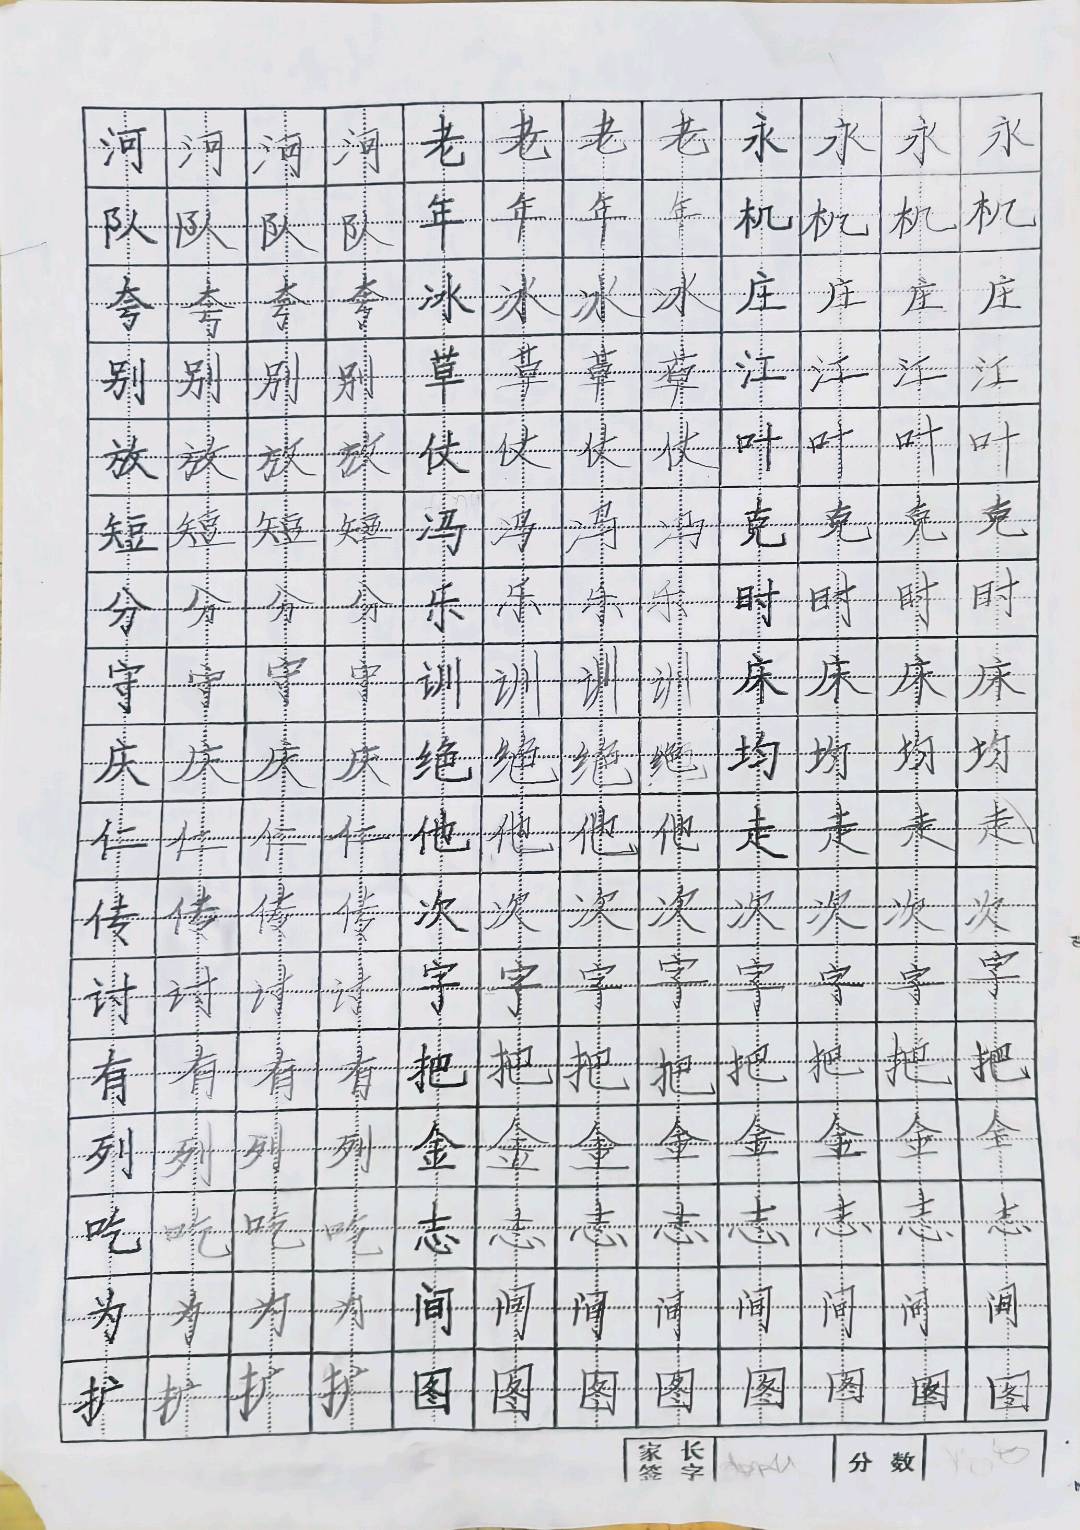 河河河河老老老老永永永永
队队队队年年年年机机机机
夸夸夸夸冰冰冰冰庄庄庄庄
别别别别草草草草江江江江
放放放放仗仗仗仗叶叶叶叶
短短短短冯冯冯冯克克克克
分分分分乐乐乐乐时时时时
守守守守训训训训床床床床
庆庆庆庆绝绝绝绝均均均均
仁仁仁仁他他他他走走走走
传传传传次次次次次次次次
讨讨讨讨字字字字字字字字
有有有有把把把把把把把把
列列列列金金金金金金金金
吃吃吃吃志志志志志志志志
为为为为间间间间间间间间
扩扩扩扩图图图图图图图图
家长签字 分数